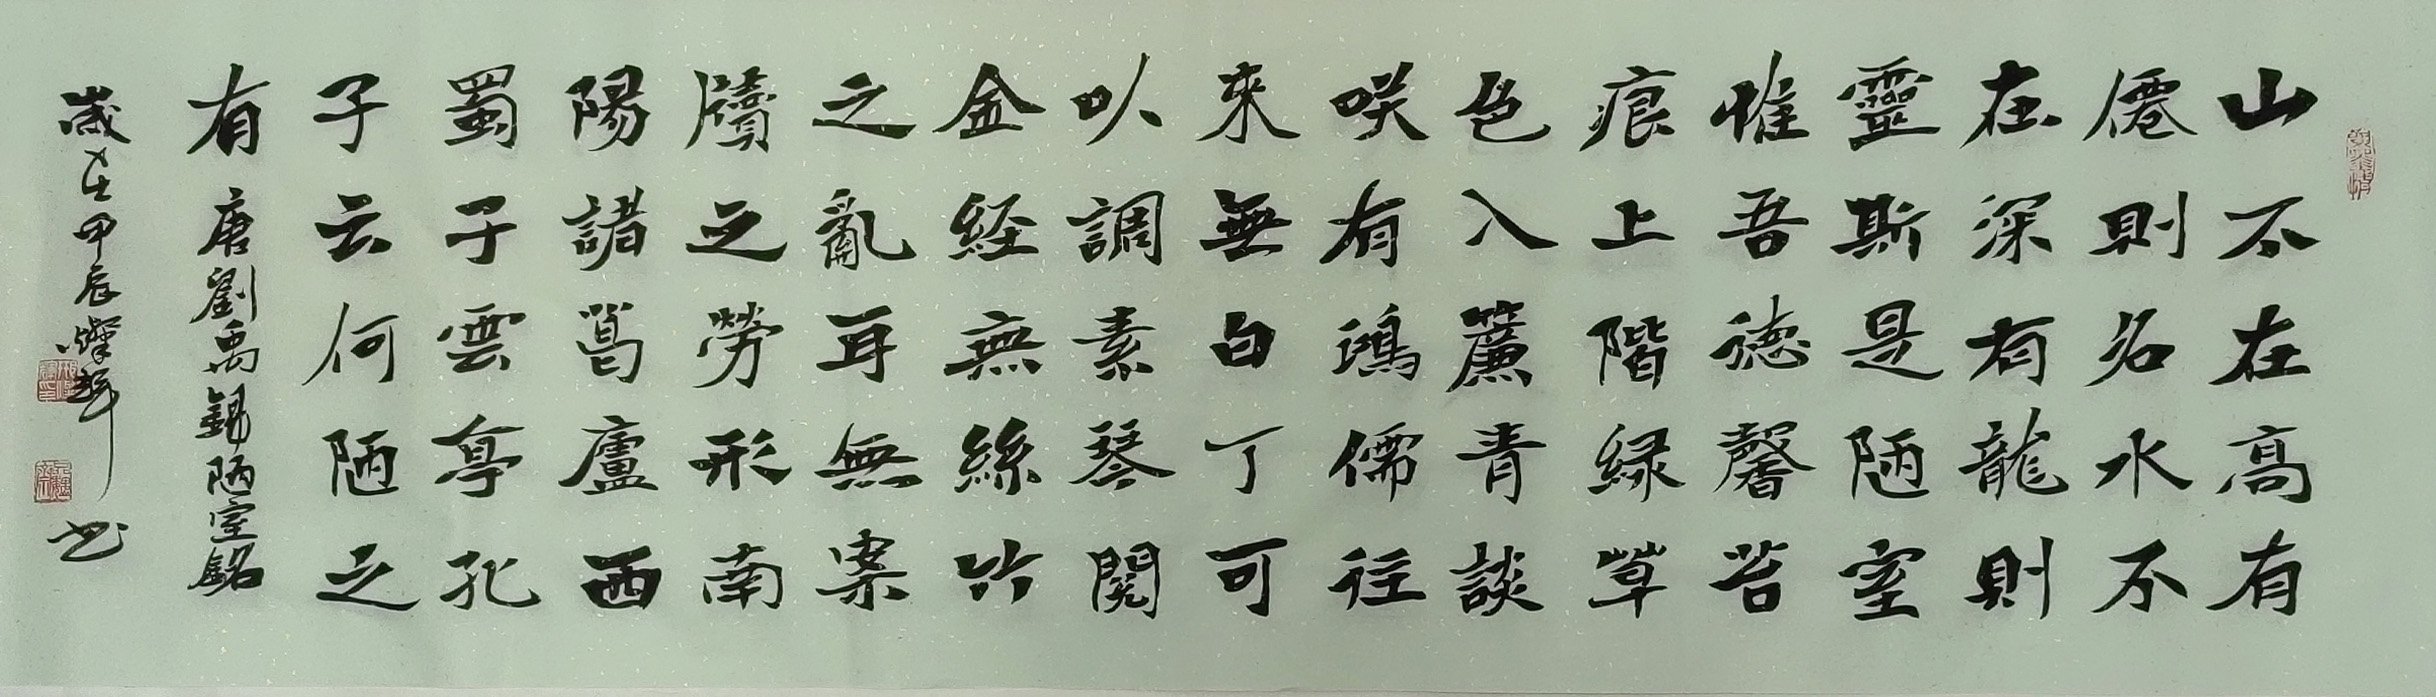 山不在高有
僊則名水不
在深有龍則
靈斯是陋室
惟吾德馨苔
痕上階緑草
色入簾青談
咲有鴻儒往
來無白丁可
以調素琴閲
金経無絲竹
之亂耳無案
牘之勞形南
陽諸葛廬西
蜀子雲亭孔
子云何陋之
有 唐劉禹錫陋室銘
歲在甲辰燦輝書